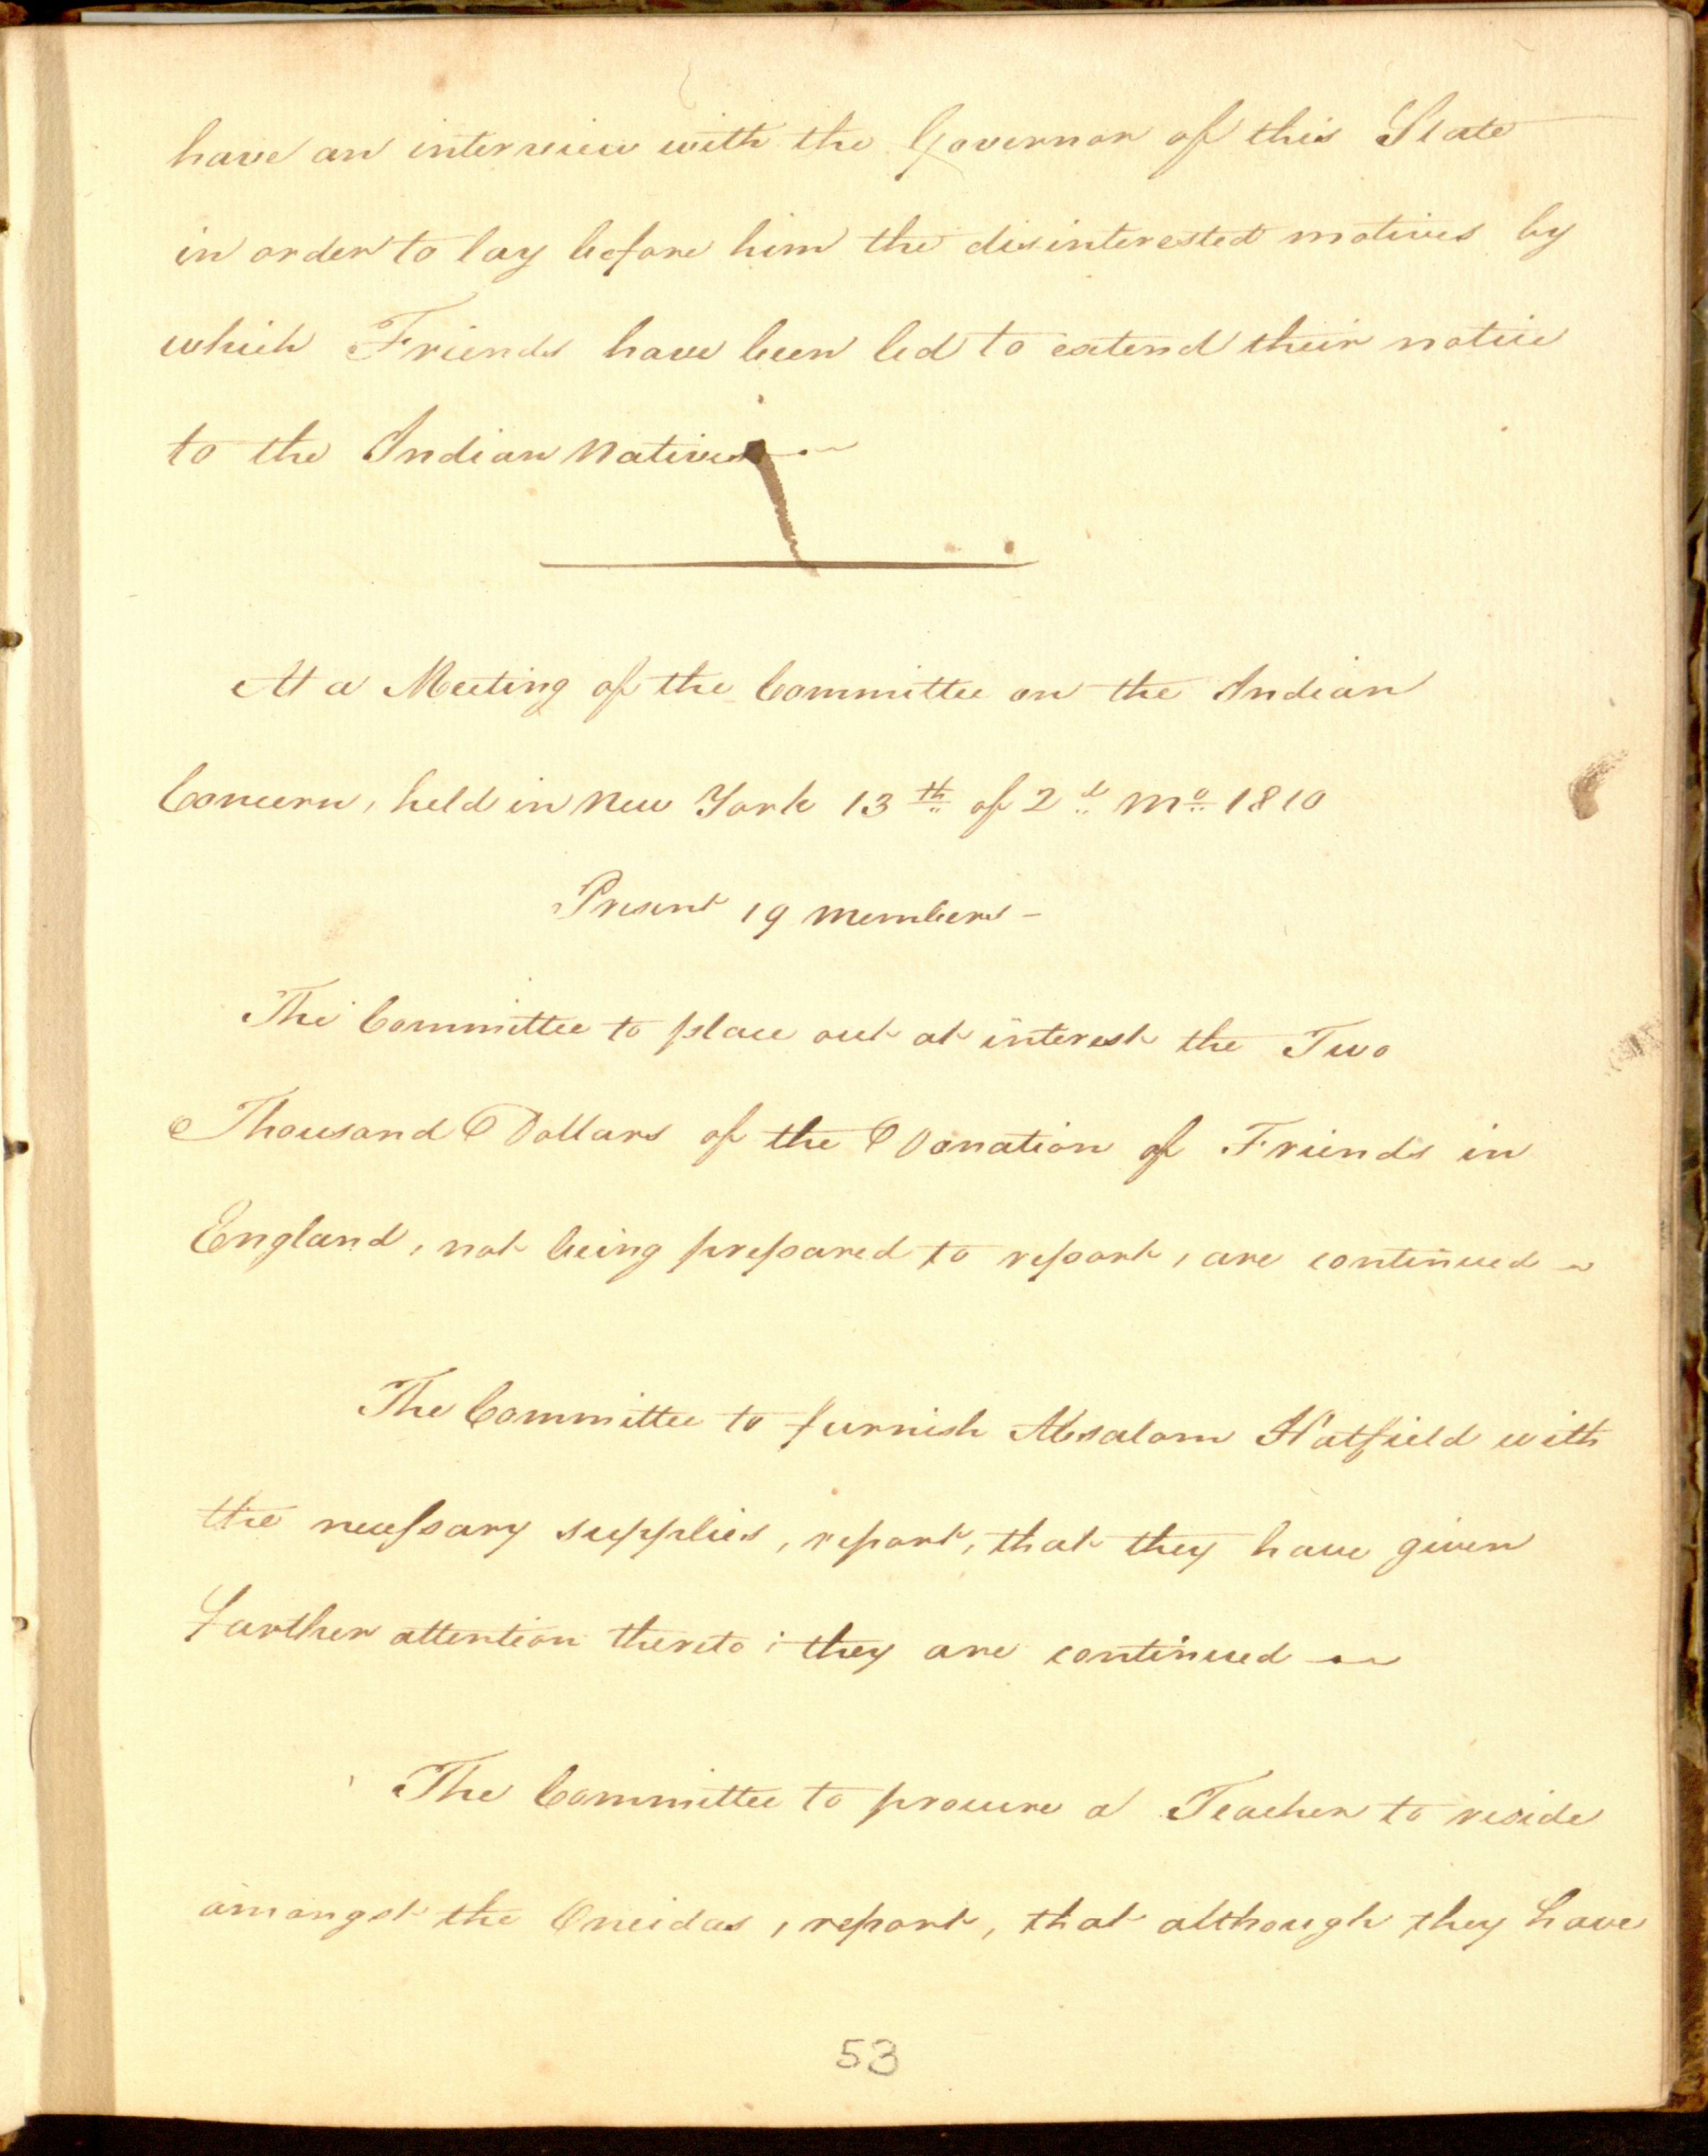 have an interview with the Governor of this State
in order to lay before him the disinterested motives by
which Friends have been led to extend their notice
to the Indian Natives
At a Meeting of the Committee on the Indian
Concern, held in New York 13th of 2d Mo 1810
Present 19 members -
The Committee to place out at interest the Two
Thousand Dollars of the Donation of Friends in
England, not being prepared to report, are continued
The Committee to furnish Absalom Hatfield with
the necessary supplies, report, that they have given
farther attention thereto; they are continued
The Committee to procure a Teacher to reside
amongst the Oneidas, report, that although they have
53